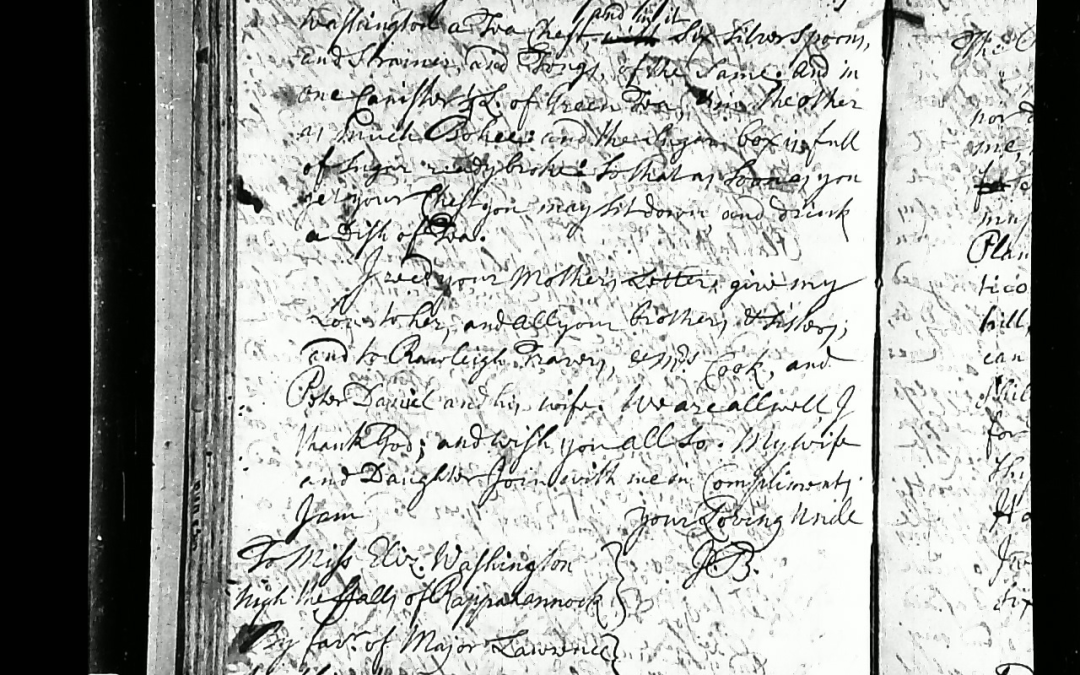 Washington a Tea Chest, and in it Six Silver Spoons,
and Strainer, and Tongs, of the Same: And in
one Canister ½ L. of Green Tea, & in the other
as much Bohee: and the Sugar box is full
of Sugar ready broke: So that as Soon as you
get your Chest you may Sit down and drink
a Dish of Tea.
I recd your Mothers Letter, give my
Love to her, and all your brothers & Sisters;
and to Rawleigh Travers, & Mrs Cook, and
Peter Daniel and his wife. We are all well I
thank God; and wish you all So. My wife
and Daughter Join with me in Compliments.
I am your Loving Uncle
To Miss Eliz. Washington J.B.
nigh the ffalls of Rappahannock
By favr. of Major Lawrence
The
nor
me,
my
Plan
tico
hill,
can
for